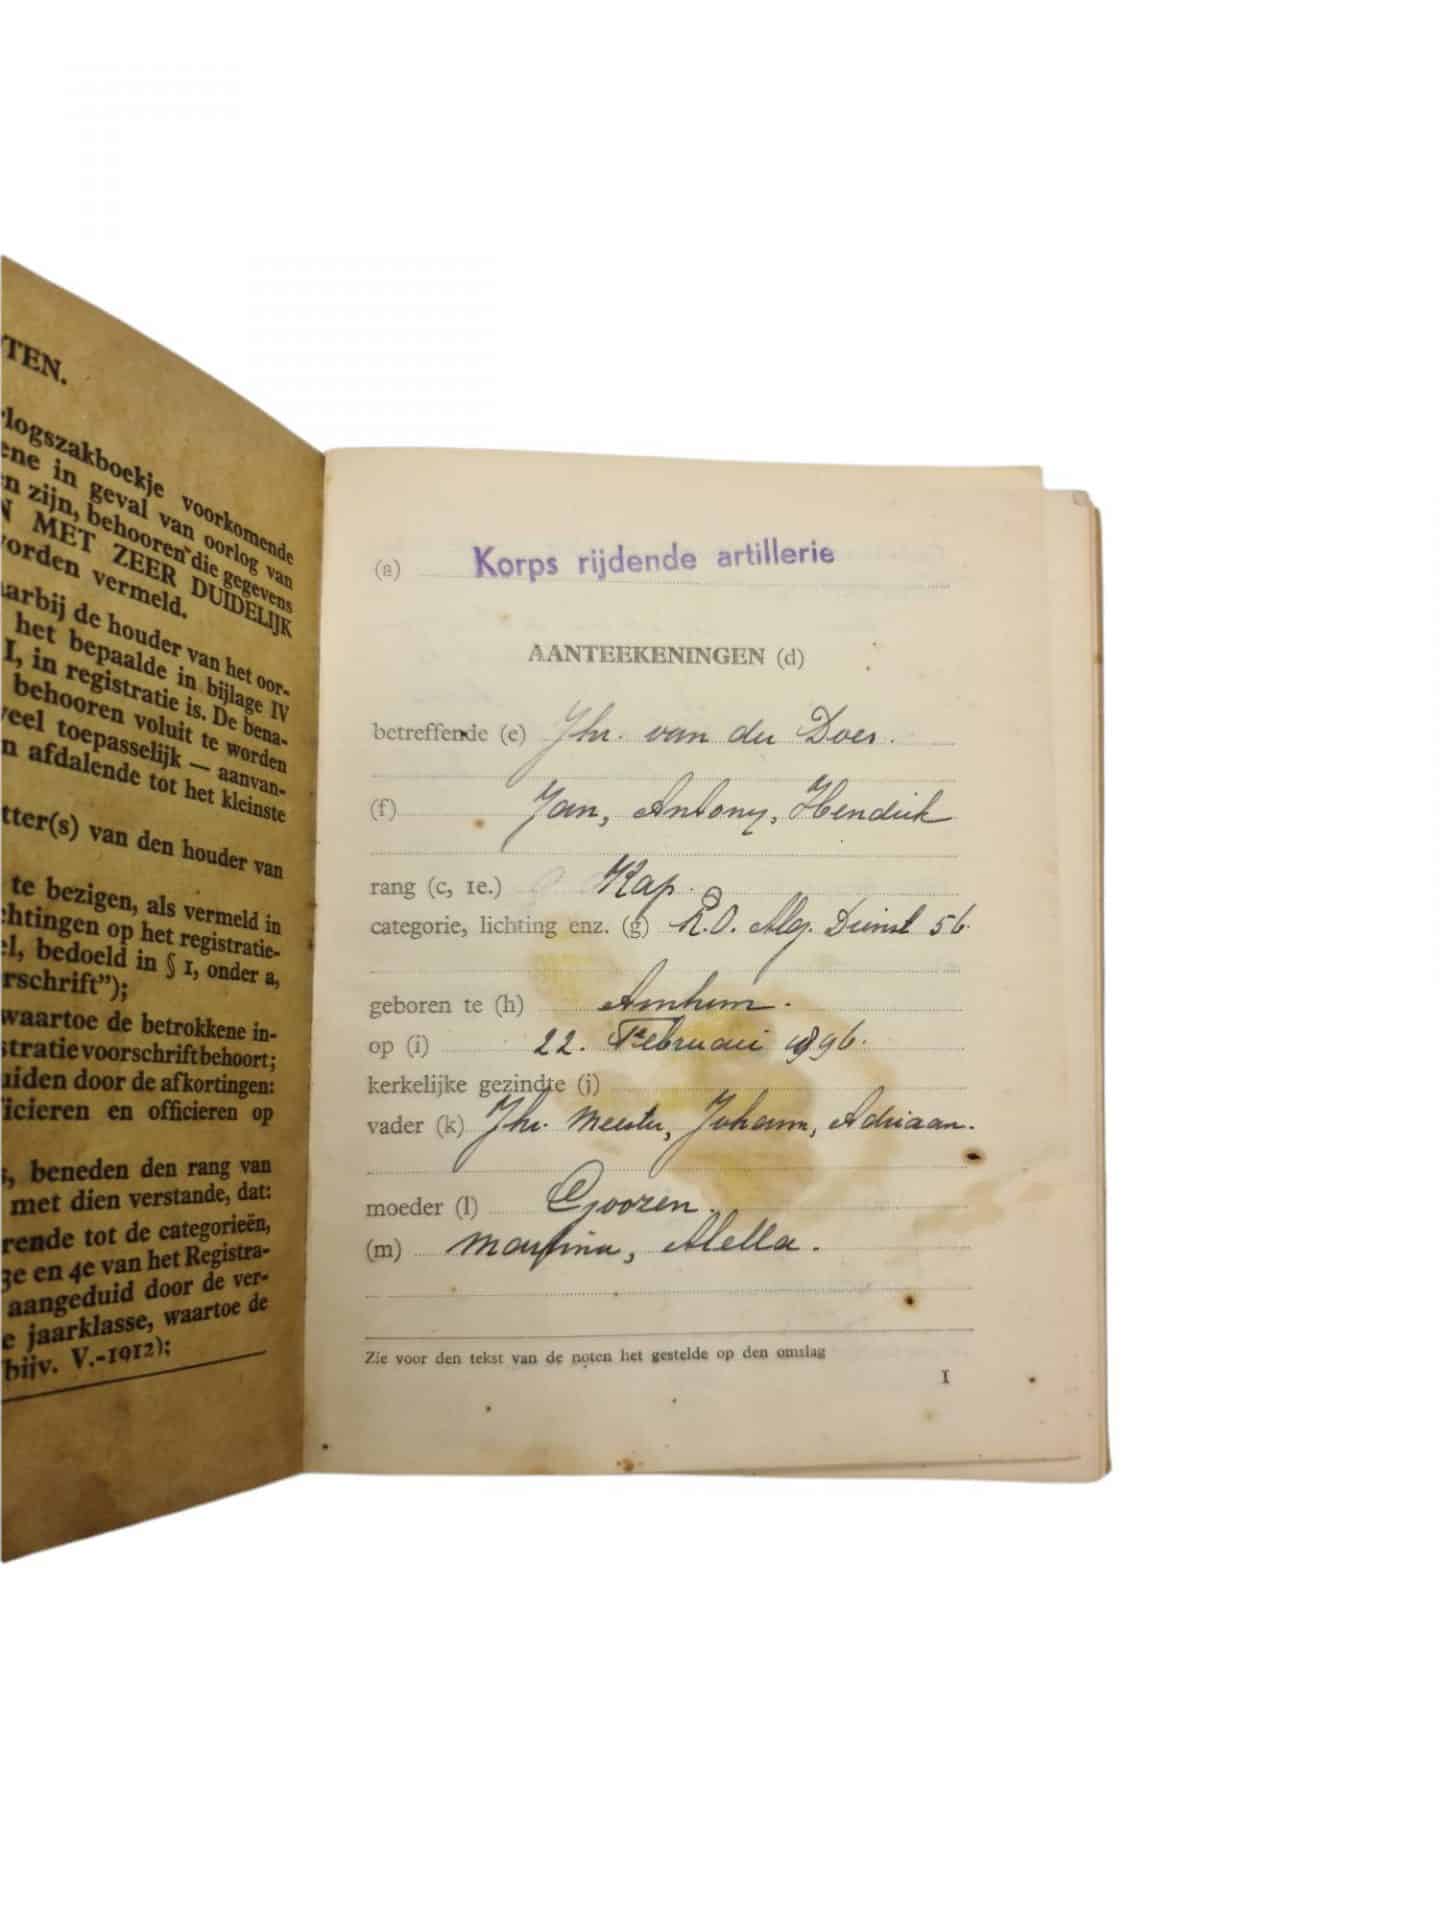 OTEN.
rlogszakboekje voorkomende
ene in geval van oorlog van
n zijn, behooren die gegevens
N MET ZEER DUIDELIJK
orden vermeld.
aarbij de houder van het oor-
het bepaalde in bijlage IV
I, in registratie is. De bena-
behooren voluit te worden
veel toepasselijk — aanvan-
n afdalende tot het kleinste
tter(s) van den houder van
te bezigen, als vermeld in
chtingen op het registratie-
el, bedoeld in § 1, onder a,
rschrift");
waartoe de betrokkene in-
stratievoorschrift behoort;
uiden door de afkortingen:
icieren en officieren op
s, beneden den rang van
met dien verstande, dat:
rende tot de categorieën,
3e en 4e van het Registra-
aangeduid door de ver-
e jaarklasse, waartoe de
bijv. V.-1912);
(a) Korps rijdende artillerie
AANTEEKENINGEN (d)
betreffende (e) Jhr. van der Does.
(f) Jan, Antony, Hendrik
rang (c, 1e.) Kap.
categorie, lichting enz. (g) R.O. Alg. Dienst 56.
geboren te (h) Arnhem.
op (i) 22. Februari 1896.
kerkelijke gezindte (j)
vader (k) Jhr. Meester, Johann, Adriaan.
moeder (l) Goozen.
(m) Martina, Alella.
Zie voor den tekst van de noten het gestelde op den omslag
1